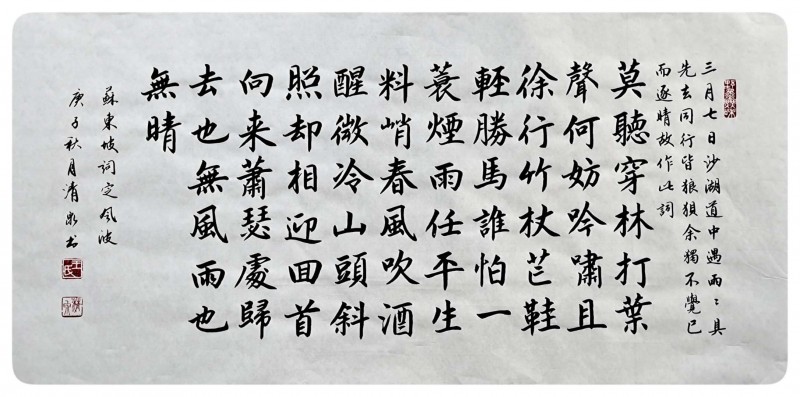 三月七日沙湖道中遇雨〻具
先去同行皆狼狽余獨不覺已
而遂晴故作此詞
莫聽穿林打葉
聲何妨吟嘯且
徐行竹杖芒鞋
輕勝馬誰怕一
蓑煙雨任平生
料峭春風吹酒
醒微冷山頭斜
照却相迎回首
向来蕭瑟處歸
去也無風雨也
無晴
蘇東坡詞定風波
庚子秋月清泉书